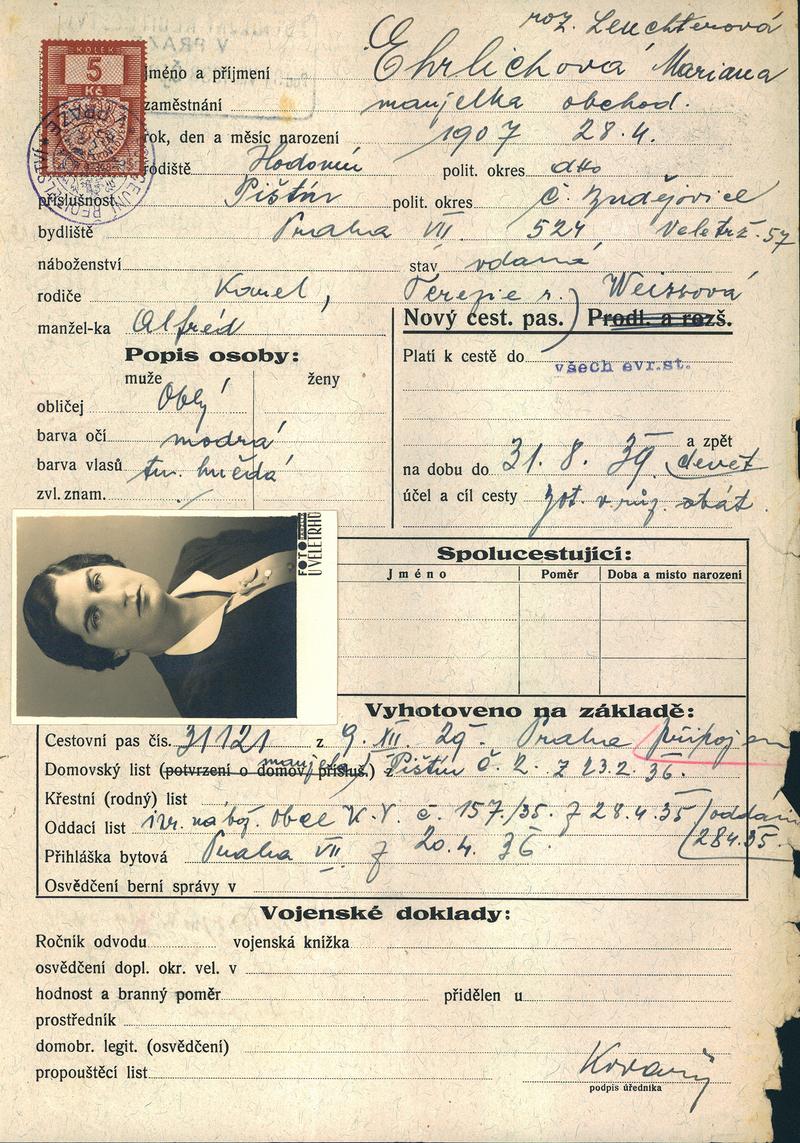 roz. Leuchterová
KOLEK
5
Kč
Jméno a příjmení Ehrlichová Mariana
zaměstnání manželka obchod.
rok, den a měsíc narození 1907 28.4.
rodiště Hodonín polit. okres dtto
příslušnost Pištín polit. okres Č. Budějovice
bydliště Praha VII. 524 Veletrž. 57
náboženství stav vdaná
rodiče Karel, Terezie r. Weissová
manžel-ka Alfréd
Nový cest. pas. Prodl. a rozš.
Popis osoby:
muže ženy
obličej Oblý
barva očí modrá
barva vlasů tm. hnědá
zvl. znam.
Platí k cestě do všech evr. st.
a zpět
na dobu do 31. 8. 39. devět
účel a cíl cesty zot. v růz. stát.
FOTO
U VELETRHŮ
Spolucestující:
Jméno Poměr Doba a místo narození
Vyhotoveno na základě:
Cestovní pas čís. 31121 z 9. XII. 29. Praha připojen
manžela
Domovský list (potvrzení o domov. přísluš.) Pištín č. 2. z 23.2. 36.
Křestní (rodný) list
Oddací list izr. nábož. obce K.V. č. 157/35. z 28.4.35 /oddáni
28.4.35.
Přihláška bytová Praha VII z 20.4. 36.
Osvědčení berní správy v
Vojenské doklady:
Ročník odvodu vojenská knížka
osvědčení dopl. okr. vel. v
hodnost a branný poměr přidělen u
prostředník
domobr. legit. (osvědčení)
propouštěcí list
podpis úředníka